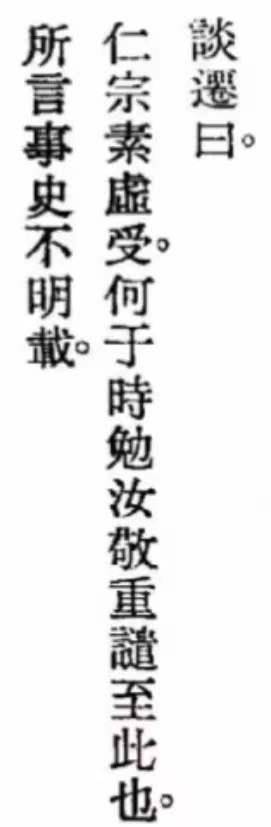 談遷曰。
仁宗素虛受。何于時勉汝敬重譴至此也。
所言事史不明載。